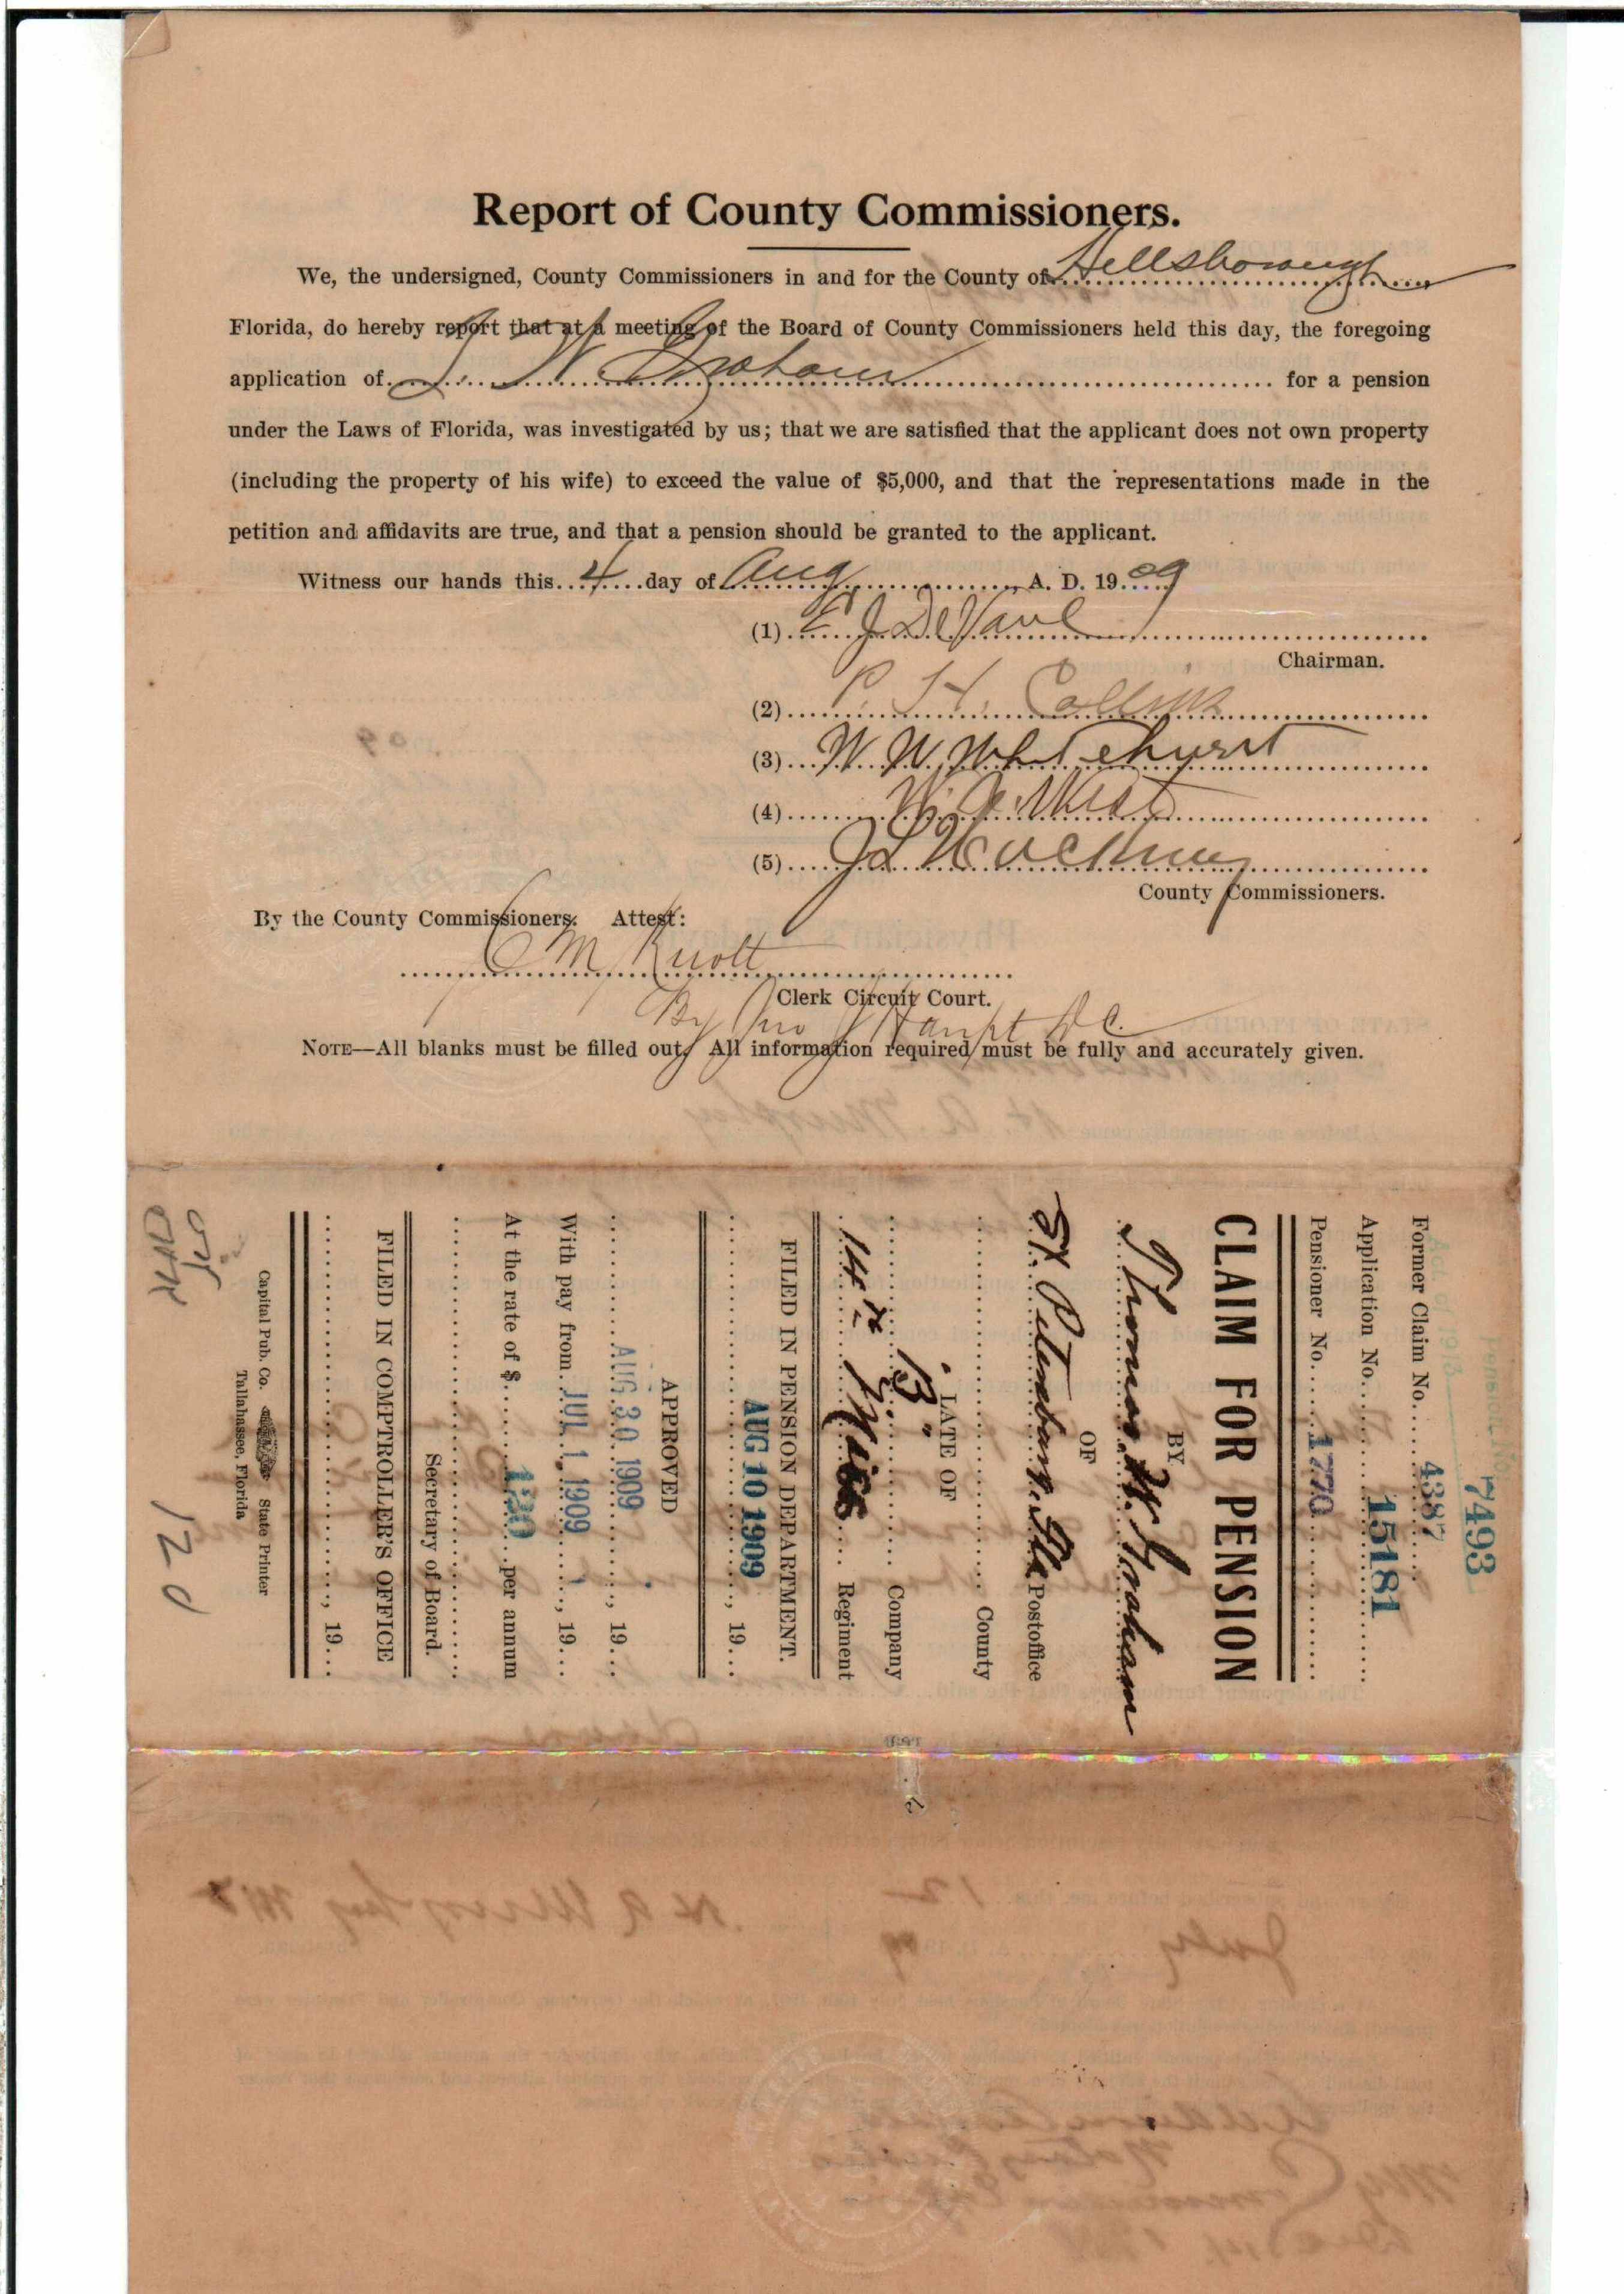 Report of County Commissioners.
We, the undersigned, County Commissioners in and for the County of Hillsborough
Florida, do hereby report that at a meeting of the Board of County Commissioners held this day, the foregoing
application of T. W. Graham for a pension
under the Laws of Florida, was investigated by us; that we are satisfied that the applicant does not own property
(including the property of his wife) to exceed the value of $5,000, and that the representations made in the
petition and affidavits are true, and that a pension should be granted to the applicant.
Witness our hands this 4 day of Aug A. D. 1909
(1) E J DeVane
Chairman.
(2) P. H. Collins
(3) W. W. Whitehurst
(4) W. A. West
(5) J L
County Commissioners.
By the County Commissioners. Attest:
C M Knott
Clerk Circuit Court.
By Jno D C.
NOTE—All blanks must be filled out. All information required must be fully and accurately given.
Act of 1913 Pension No. 7493
Former Claim No. 4387
Application No. 15181
Pensioner No. 1770
CLAIM FOR PENSION
BY
Thomas W. Graham
OF
St. Petersburg, Fla Postoffice
County
LATE OF
"B" Company
14th Miss Regiment
FILED IN PENSION DEPARTMENT.
AUG 10 1909, 19
APPROVED
AUG 30 1909, 19
With pay from JUL 1 1909, 19
At the rate of $ 120 per annum
Secretary of Board.
FILED IN COMPTROLLER'S OFFICE
, 19
Capital Pub. Co. State Printer
Tallahassee, Florida
120